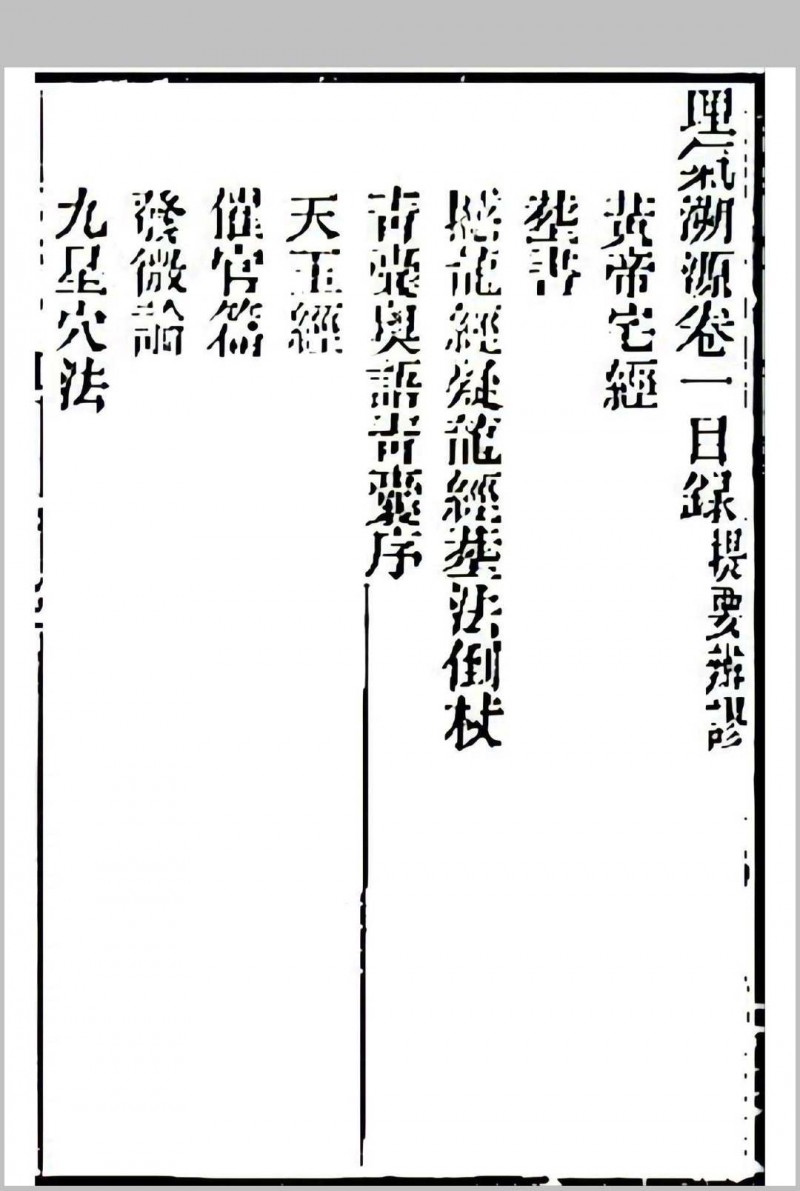 理氣溯源卷一目錄提要辨謬
黃帝宅經
塟書
撼龍經疑龍經塟法倒杖
青囊奥語青囊序
天玉經
催官篇
發微論
九星穴法